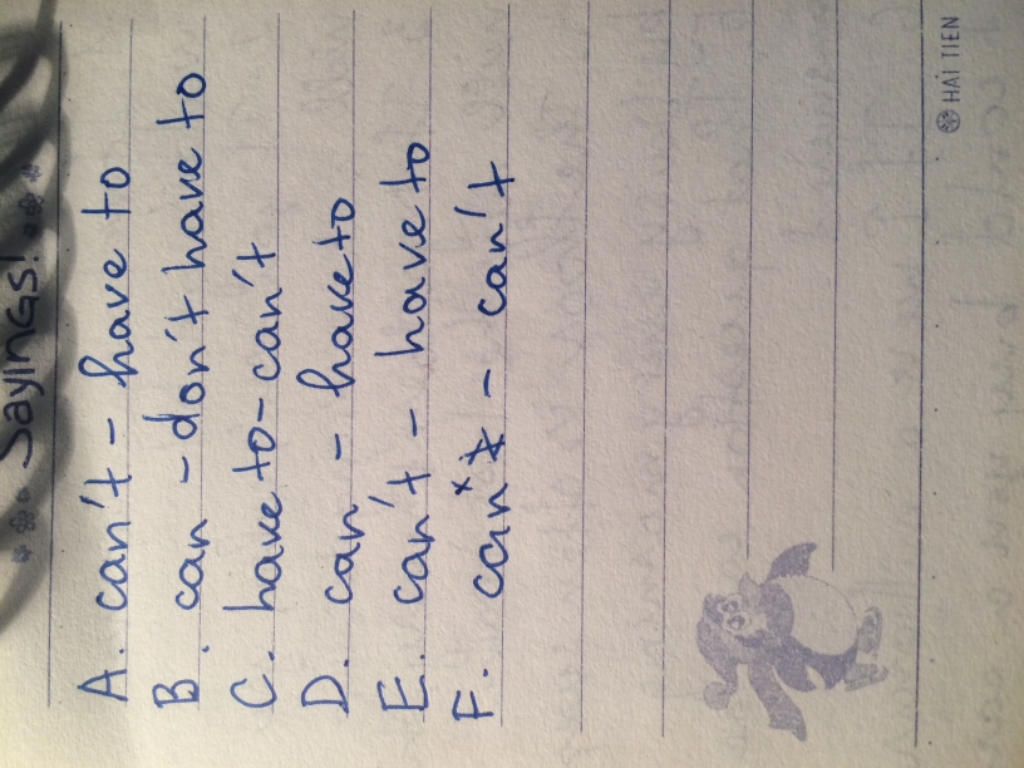 Sayings!
A. can't - have to
B. can - don't have to
C. have to - can't
D. can - have to
E. can't - have to
F. can - can't
HẢI TIẾN